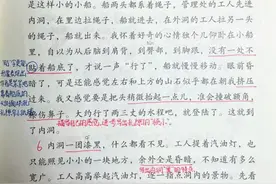 是这样小的小船。船两头都系着绳子，管理处的工人先进
内洞，在里边拉绳子，船就进去，在外洞的工人拉另一头
的绳子，船就出来。我怀着好奇的心情独个儿仰卧在小船
里，自以为从后脑到肩背，到臀部，到脚跟，没有一处不
贴着船底了，才说一声“行了”，船就慢慢移动。眼前昏
暗了，可是还能感觉左右和上方的山石似乎都在朝我挤压
过来。我又感觉要是把头稍微抬起一点儿，准会撞破额角，
擦伤鼻子。大约行了两三丈的水程吧，就登陆了。这就到
了内洞。
6 内洞一团漆黑，什么都看不见。工人提着汽油灯，也
只能照见小小的一块地方，余外全是昏暗，不知道有多么
宽广。工人高高举起汽油灯，逐一指点洞内的景物。先看